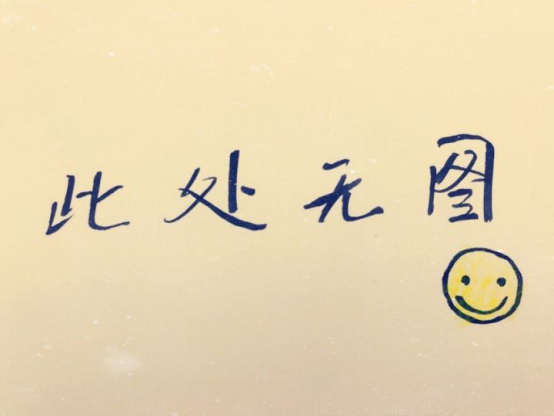 此处无图